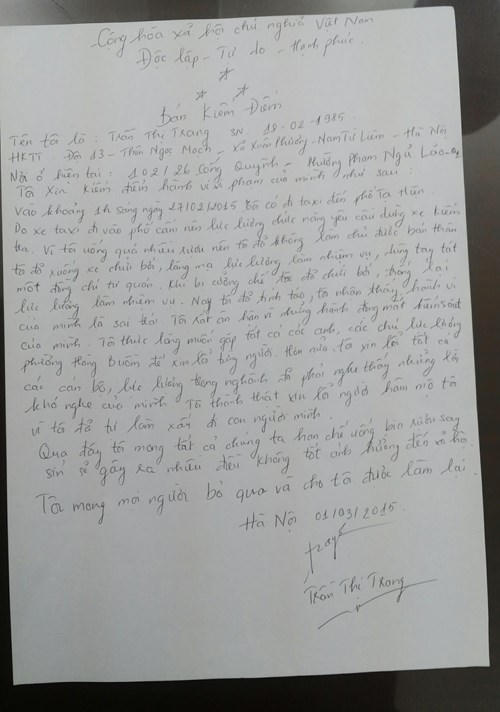 Cộng hóa xả hôi chủ nghĩa Việt Nam
Độc lập - Tự do - Hạnh phúc.
Bản Kiểm Điểm
Tên tôi là : Trần Thị Trang SN 19-02-1985.
HKTT Đội 13 - Thôn Ngọc Mạch - Xã Xuân Phương - Nam Từ Liêm - Hà Nội
Nơi ở hiện tại : 102/26 Cống Quỳnh - Phường Phạm Ngũ Lão - Q1
Tôi xin kiểm điểm hành vi vi phạm của mình như sau :
Vào khoảng 1h sáng ngày 27/02/2015 tôi có đi taxi đến phố Tạ Hiện.
Do xe taxi đi vào phố cấm nên lực lượng chức năng yêu cầu dừng xe kiểm
tra. Vì tôi uống quá nhiều rượu nên tôi đã không làm chủ được bản thân
tôi đã xuống xe chửi bới, lăng mạ lực lượng làm nhiệm vụ, dùng tay tát
một đồng chí tự quản. Khi bị cưỡng chế tôi đã chửi bới, chống lại
lực lượng làm nhiệm vụ. Nay tôi đã tỉnh táo, tôi nhận thấy hành vi
của mình là sai trái. Tôi rất ân hận vì những hành động mất kiểm soát
của mình. Tôi thực lòng muốn gặp tất cả các anh, các chú lực lượng
phường Hàng Buồm để xin lỗi từng người. Hơn nữa tôi xin lỗi tất cả
các cán bộ, lực lượng trong nghành đã phải nghe thấy những lời
khó nghe của mình. Tôi thành thật xin lỗi người hâm mộ tôi
vì tôi đã tự làm xấu đi con người mình.
Qua đây tôi mong tất cả chúng ta hạn chế uống bia rượu say
sỉn sẽ gây ra nhiều điều không tốt ảnh hưởng đến xã hội.
Tôi mong mọi người bỏ qua và cho tôi được làm lại.
Hà Nội 01/03/2015.
Trần Thị Trang